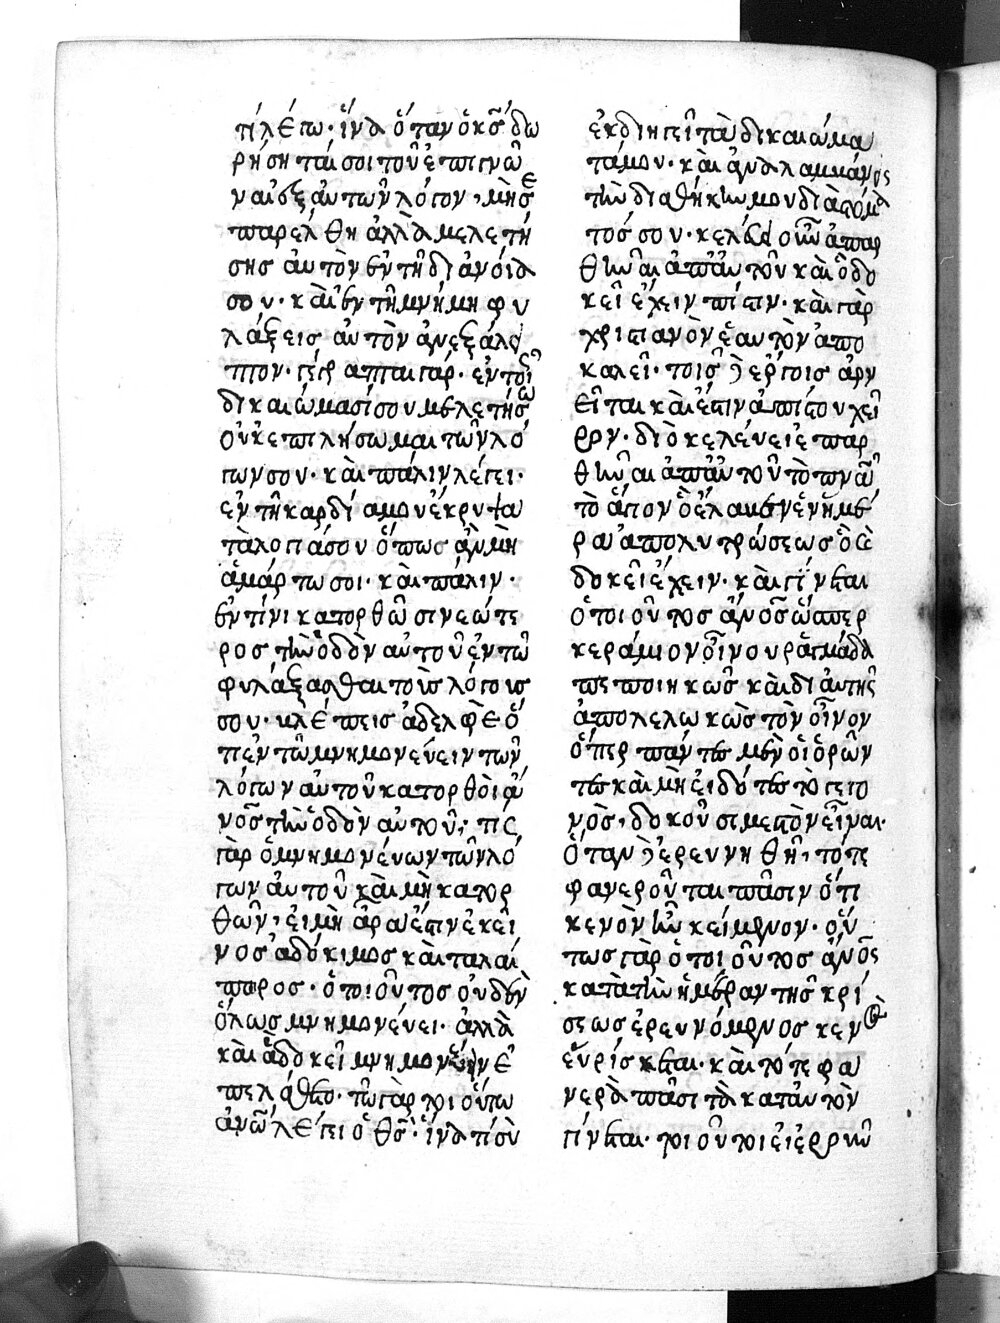 τί λέγω· ἵνα ὅταν ὁ κς̄ δω
ρήσηταί σοι τοῦ ἐπιγνῶ
ναί σε αὐτῶν λόγον, μή σε
παρέλθη ἀλλὰ μελετή
σης αὐτὸν ἐν τῆ διανοία
σου· καὶ ἐν τῆ μνήμη φυ
λάξεις αὐτὸν
γέγραπται γάρ· ἐν τοῖς
δικαιώμασί σου μελετήσω
οὐκ ἐπιλήσωμαι τῶν λό
γων σου· καὶ πάλιν λέγει·
ἐν τῆ καρδία μου ἔκρυψα
τὰ λόγιά σου ὅπως ἂν μὴ
ἁμάρτω σοι· καὶ πάλιν·
ἐν τίνι κατορθώσει νεώτε
ρος τὴν ὁδὸν αὐτοῦ ἐν τῶ
φυλάξασθαι τοὺς λόγους
σου· βλέπεις ἀδελφὲ ὅ
τι ἐν τῶ μνημονεύειν τῶν
λόγων αὐτοῦ κατορθοῖ ἄν
νος̄ τὴν ὁδὸν αὐτοῦ; τίς
γὰρ ὁ μνημονεύων τῶν λό
γων αὐτοῦ καὶ μὴ κατορ
θῶν, εἰ μὴ ἄρα ἐστὶν ἐκεῖ
νος ἀδόκιμος καὶ ταλαί
πωρος· ὁ τοιοῦτος οὐδὲν
ὅλως μνημονεύει· ἀλλὰ
καὶ ἃ δοκεῖ μνημονεύειν ἐ
πελάθετο· τῶ γὰρ τοιούτω
ἀνω̄ λέγει ὁ θς̄· ἵνα τί σὺ
ἐκδιηγεῖ τὰ δικαιώμα
τά μου· καὶ ἀναλαμβάνεις
τὴν διαθήκην μου διὰ στόμα
τός σου· κελεύει οὖν ἀπαρ
θῆναι ἀπ' αὐτοῦ καὶ ὃ δο
κεῖ ἔχειν πίστιν· καὶ γὰρ
χριστιανὸν ἑαυτὸν ἀπο
καλεῖ· τοῖς δὲ ἔργοις ἀρν
εῖται καὶ ἔστιν ἀπίστου χεῖ
ρον· διὸ κελεύει ἐπαρ
θῆναι ἀπ' αὐτοῦ τὸ πνᾱ
τὸ ἅγιον ὃ ἔλαβεν ἐν ἡμέ
ρα ἀπολυτρώσεως ὃ
δοκεῖ ἔχειν· καὶ γίνεται
ὁ τοιοῦτος ἄνος̄ ὥσπερ
κεράμιον οἴνου ῥαγμάδα
τις ποιηκὼς καὶ δι' αὐτῆς
ἀπολελωκὼς τὸν οἶνον
ὅπερ πάντες μὲν οἱ ὁρῶν
τες καὶ μὴ εἰδότες τὸ γεγο
νὸς, δοκοῦσι μεστὸν εἶναι·
ὅταν δὲ ἐρευνηθῆ, τότε
φανεροῦται πᾶσιν ὅτι
κενὸν ἦν κείμενον· οὕ
τως γὰρ ὁ τοιοῦτος ἄνος̄
κατὰ τὴν ἡμέραν τῆς κρί
σεως ἐρευνόμενος κενὸς
εὑρίσκεται· καὶ τότε φα
νερὰ πᾶσι τὰ κατ' αὐτὸν
γίνεται· τοιοῦτοί εἰσιν